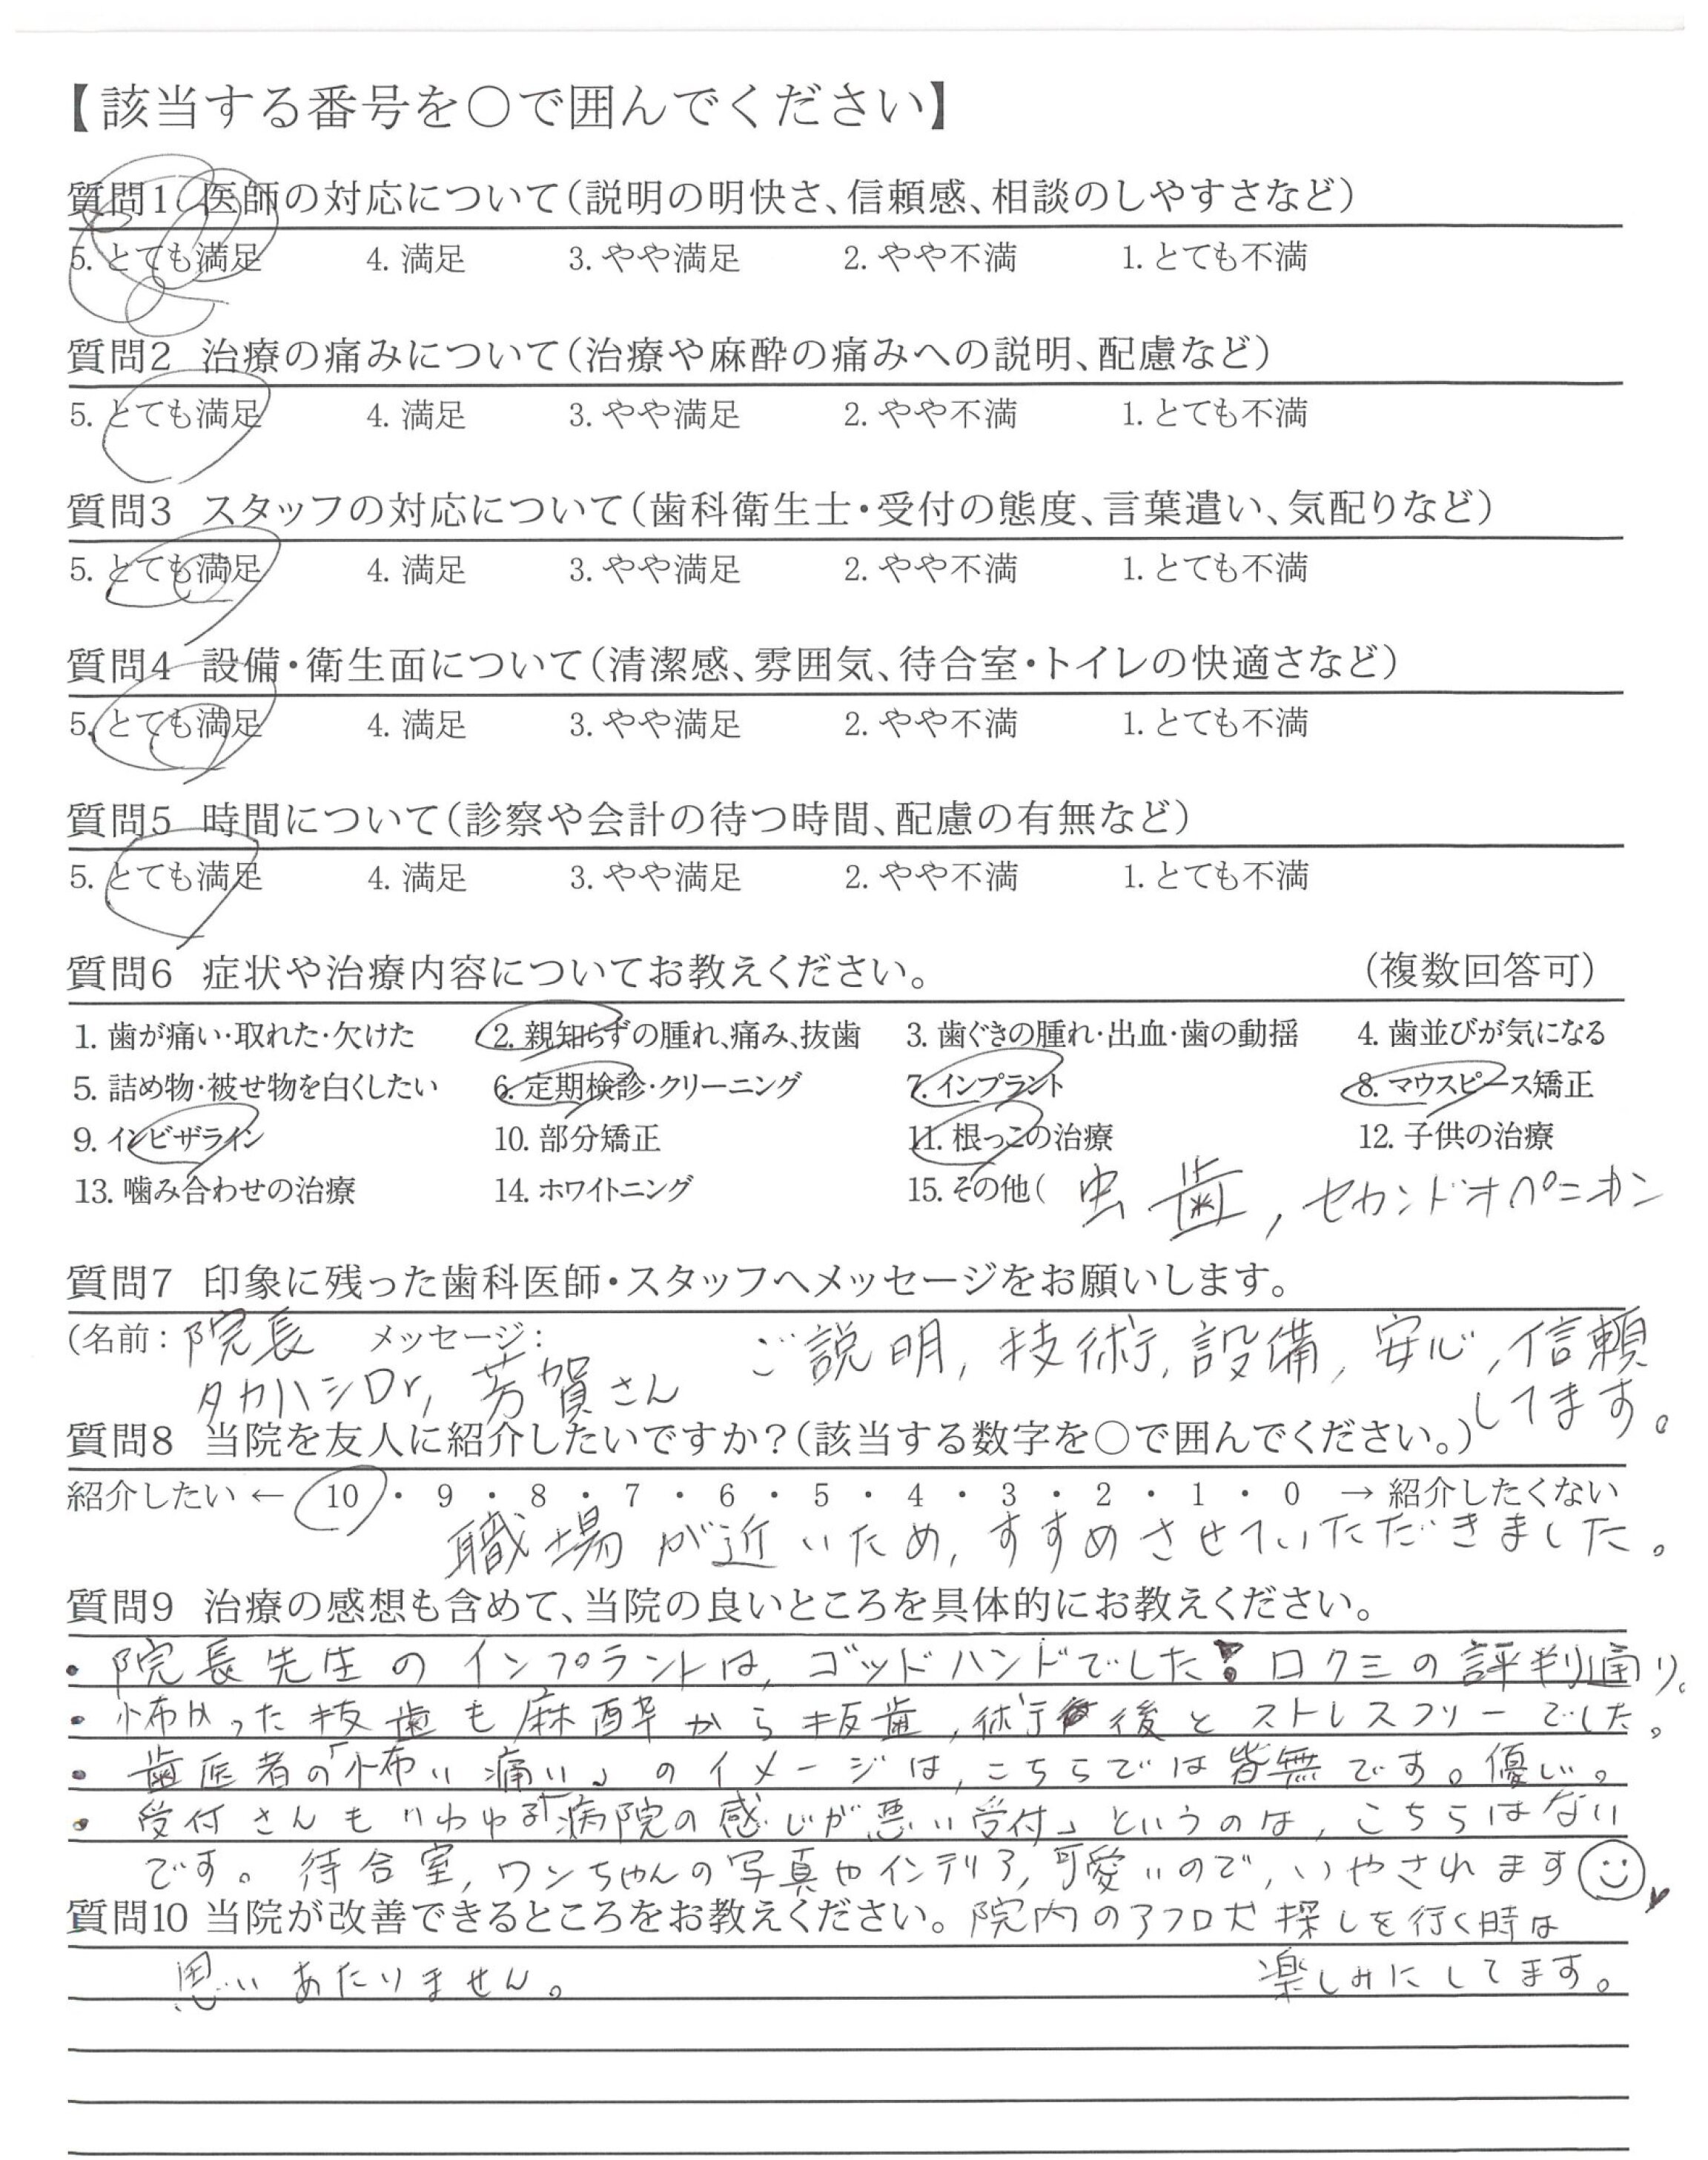 【該当する番号を〇で囲んでください】
質問1 医師の対応について(説明の明快さ、信頼感、相談のしやすさなど)
5. とても満足 4. 満足 3. やや満足 2. やや不満 1. とても不満
質問2 治療の痛みについて(治療や麻酔の痛みへの説明、配慮など)
5. とても満足 4. 満足 3. やや満足 2. やや不満 1. とても不満
質問3 スタッフの対応について(歯科衛生士・受付の態度、言葉遣い、気配りなど)
5. とても満足 4. 満足 3. やや満足 2. やや不満 1. とても不満
質問4 設備・衛生面について(清潔感、雰囲気、待合室・トイレの快適さなど)
5. とても満足 4. 満足 3. やや満足 2. やや不満 1. とても不満
質問5 時間について(診察や会計の待つ時間、配慮の有無など)
5. とても満足 4. 満足 3. やや満足 2. やや不満 1. とても不満
質問6 症状や治療内容についてお教えください。 (複数回答可)
1. 歯が痛い・取れた・欠けた 2. 親知らずの腫れ、痛み、抜歯 3. 歯ぐきの腫れ・出血・歯の動揺 4. 歯並びが気になる
5. 詰め物・被せ物を白くしたい 6. 定期検診・クリーニング 7. インプラント 8. マウスピース矯正
9. インビザライン 10. 部分矯正 11. 根っこの治療 12. 子供の治療
13. 噛み合わせの治療 14. ホワイトニング 15. その他( 虫歯, セカンドオペニオン
質問7 印象に残った歯科医師・スタッフへメッセージをお願いします。
(名前: 院長 メッセージ: ご説明, 技術, 設備, 安心, 信頼
タカハシDr, 芳賀さん してます。
質問8 当院を友人に紹介したいですか?(該当する数字を〇で囲んでください。)
紹介したい ← 10 ・ 9 ・ 8 ・ 7 ・ 6 ・ 5 ・ 4 ・ 3 ・ 2 ・ 1 ・ 0 → 紹介したくない
職場が近いため, すすめさせていただきました。
質問9 治療の感想も含めて、当院の良いところを具体的にお教えください。
・院長先生のインプラントは, ゴッドハンドでした! 口クミの評判通り。
・怖かった抜歯も麻酔から抜歯, 術後とストレスフリーでした。
・歯医者の「怖い痛い」のイメージは, こちらでは皆無です。優しい。
・受付さんもいわゆる「病院の感じが悪い受付」というのは, こちらはない
です。待合室, ワンちゃんの写真やインテリア, 可愛いので, いやされます
質問10 当院が改善できるところをお教えください。院内のアフロ犬探しを行く時は
思いあたりません。 楽しみにしてます。